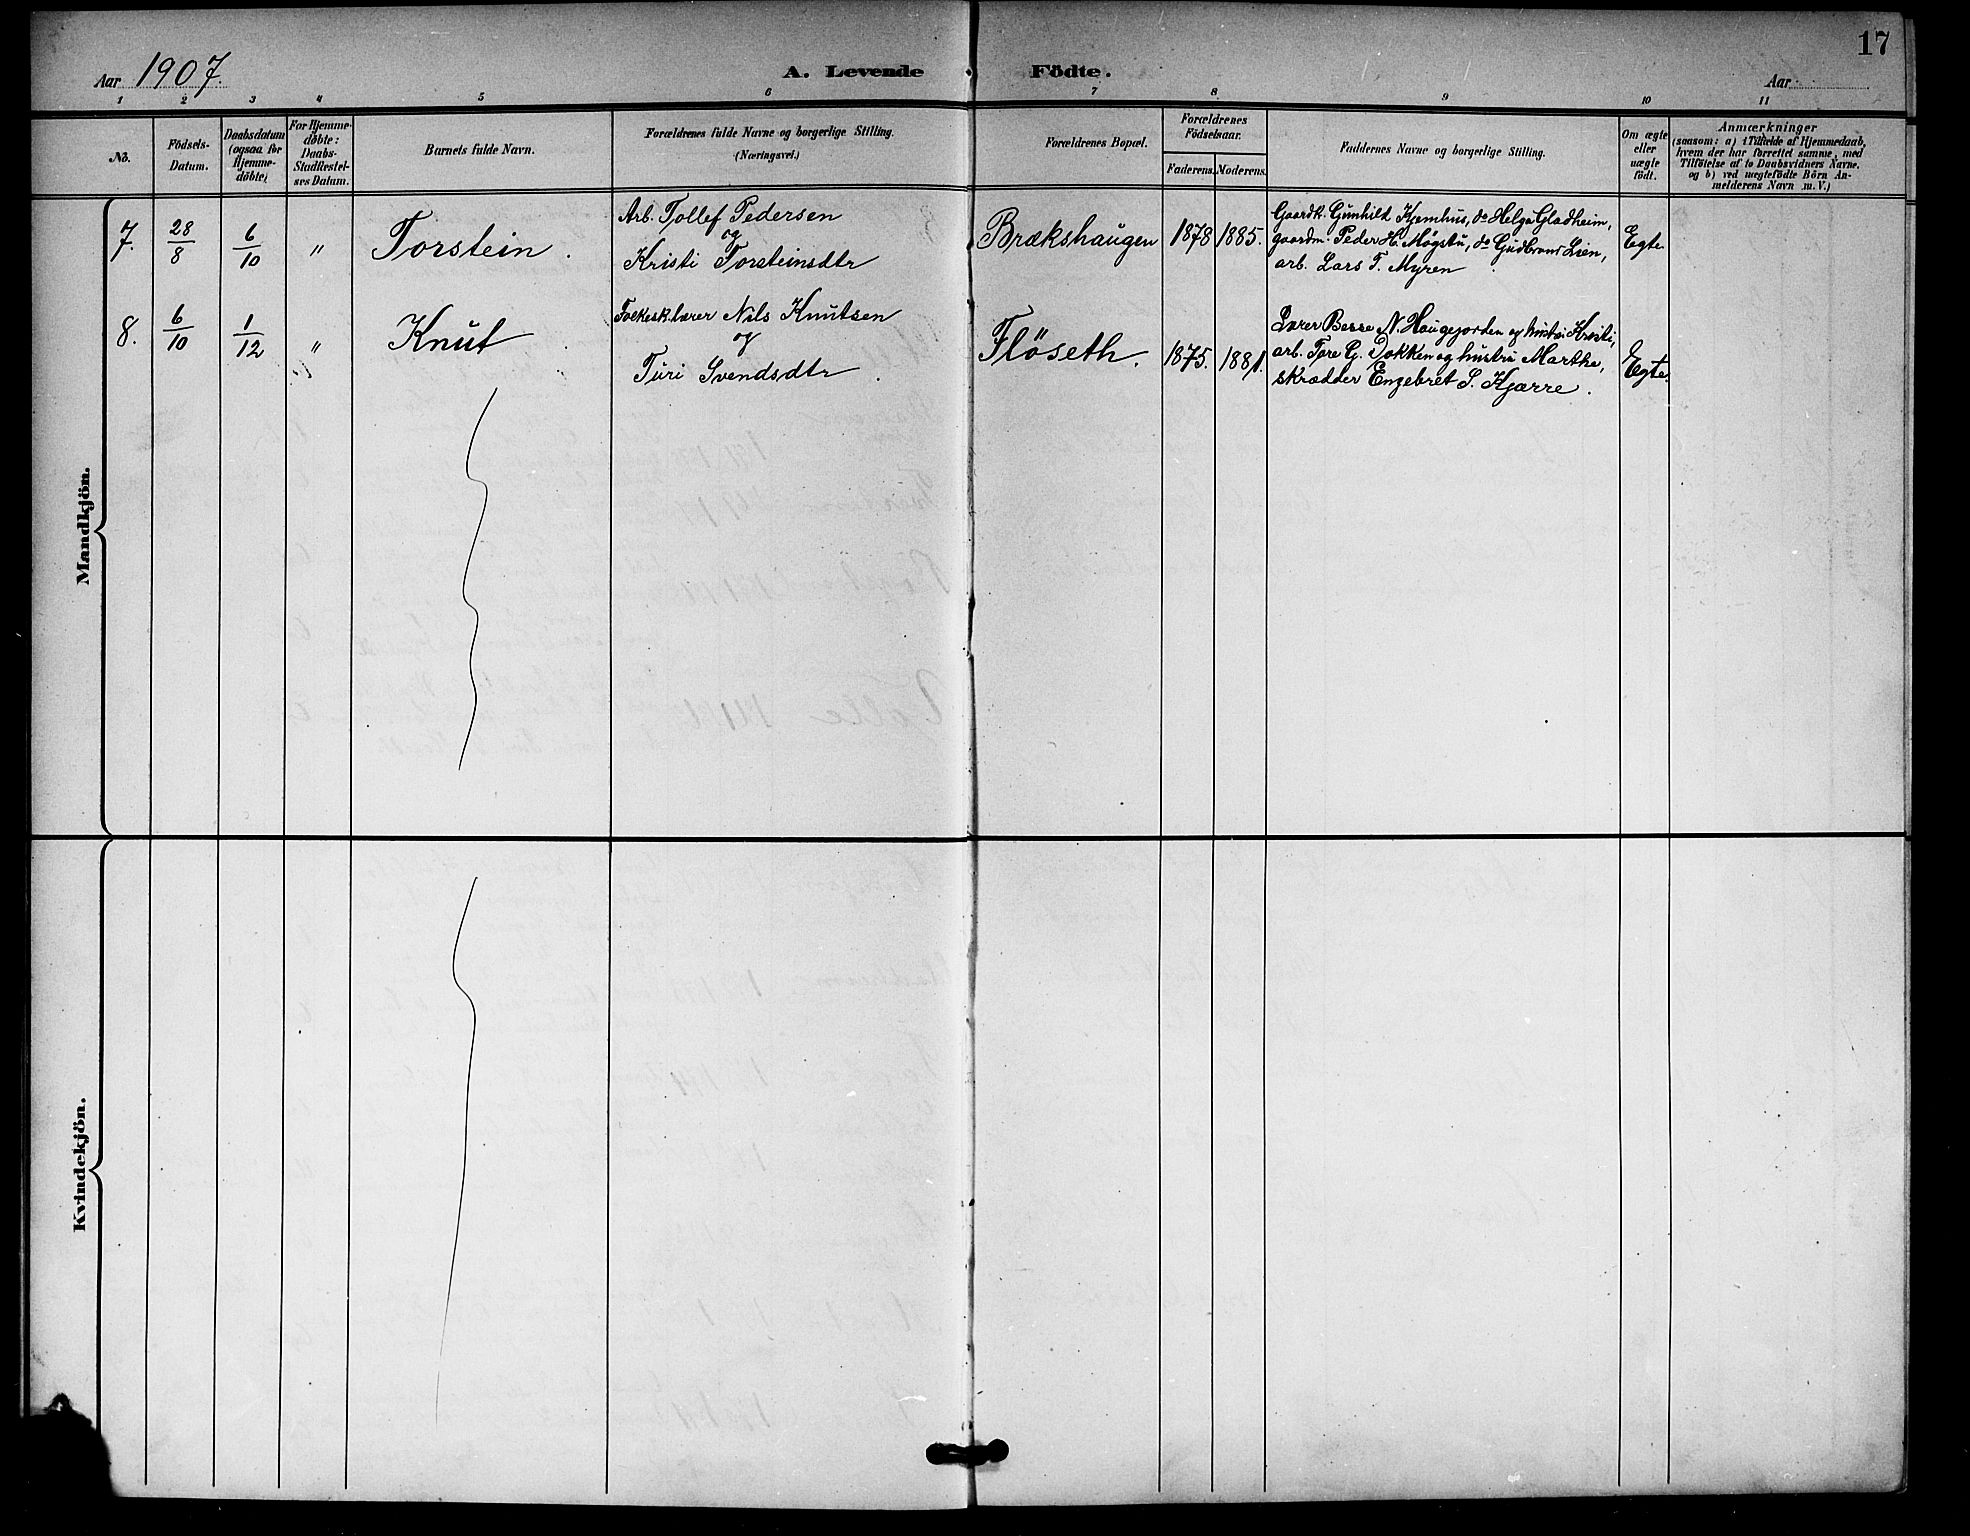 17
Aar 1907.
A. Levende Födte.
Aar
1 2 3 4 5 6 7 8. 9 10 11
No.
Födsels-Datum.
Daabsdatum (ogsaa for Hjemme-döbte)
For Hjemme-döbte: Daabs-Stadfæstel-ses Datum.
Barnets fulde Navn.
Forældrenes fulde Navne og borgerlige Stilling.
(Næringsvei.)
Forældrenes Bopæl.
Forældrenes Födselsaar.
Faderens. Moderens.
Faddernes Navne og borgerlige Stilling.
Om ægte eller uægte födt.
Anmærkninger
(saasom: a) i Tilfælde af Hjemmedaab,
hvem der har forrettet samme, med
Tilföielse af to Daabsvidners Navne.
og b) ved uægtefödte Börn An-
melderens Navn m. V.)
Mandkjön.
7. 28/8 6/10 " Torstein.
Arb. Tollef Pedersen
og
Kristi Torsteinsdtr
Brækshaugen 1878 1885.
Gaardk. Gunhild Kjemhus, do Helga Gladheim,
gaardm. Peder H. Møgstu, do Gudbrand Lien,
arb. Lars T. Myren
Egte.
8. 6/10 1/12 " Knut.
Folkesk.lærer Nils Knutsen
og
Turi Svendsdtr.
Flöseth. 1875. 1881.
Lærer N. Haugejorden og hustru Kristi,
arb. Tore G. Dokken og hustru Marthe,
skrædder Engebret S. Kjærre.
Egte.
Kvindekjön.